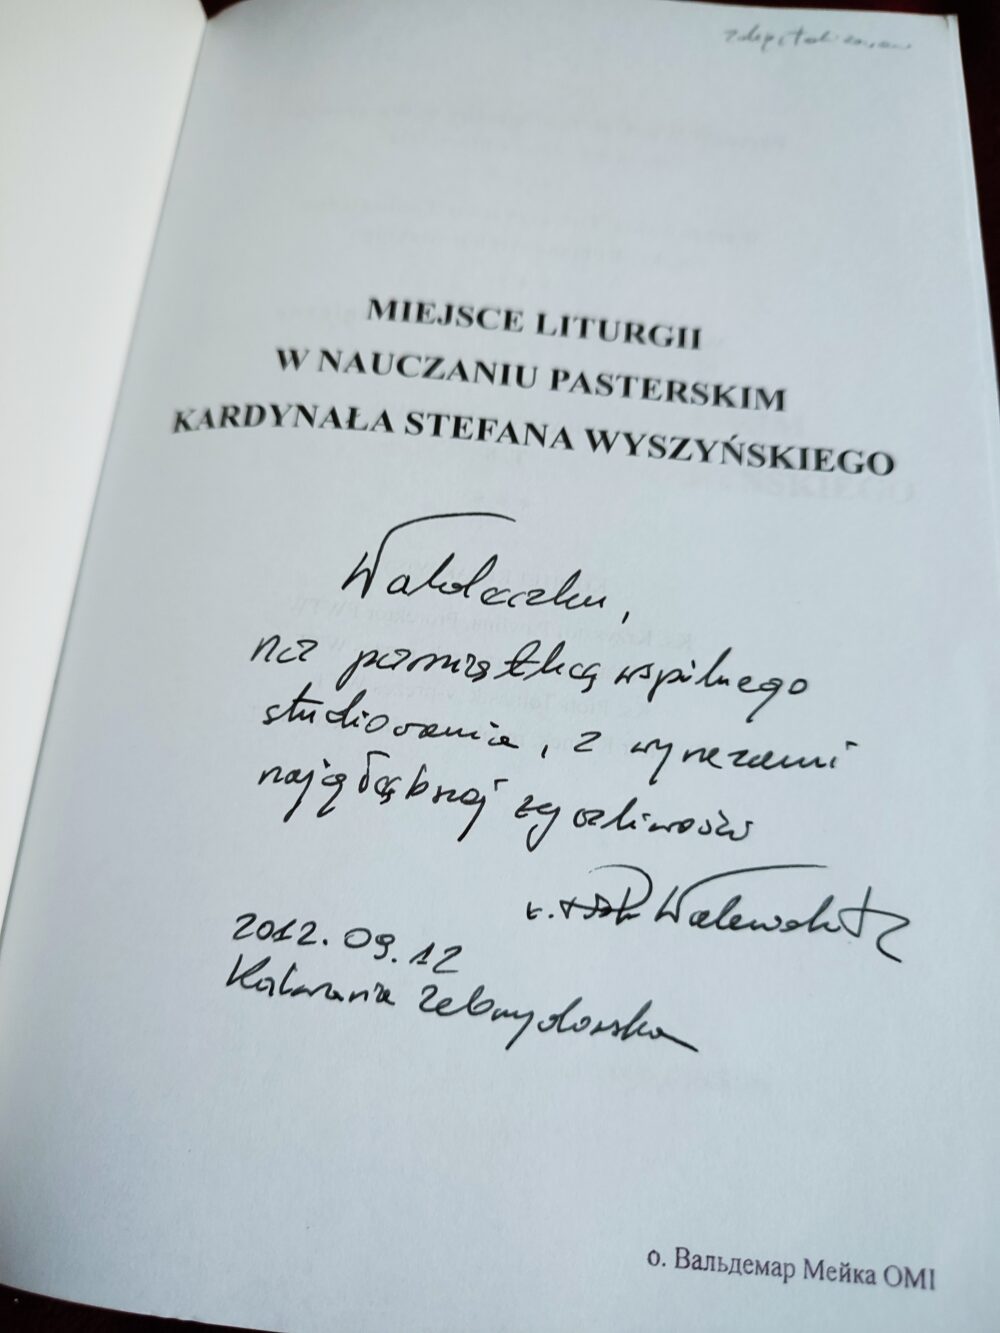 MIEJSCE LITURGII
W NAUCZANIU PASTERSKIM
KARDYNAŁA STEFANA WYSZYŃSKIEGO
na pamiątkę wspólnego
studiowania, z wyrazami
najgłębszej życzliwości
Walewski
2012.09.12
Kalwaria Zebrzydowska
о. Вальдемар Мейка OMI